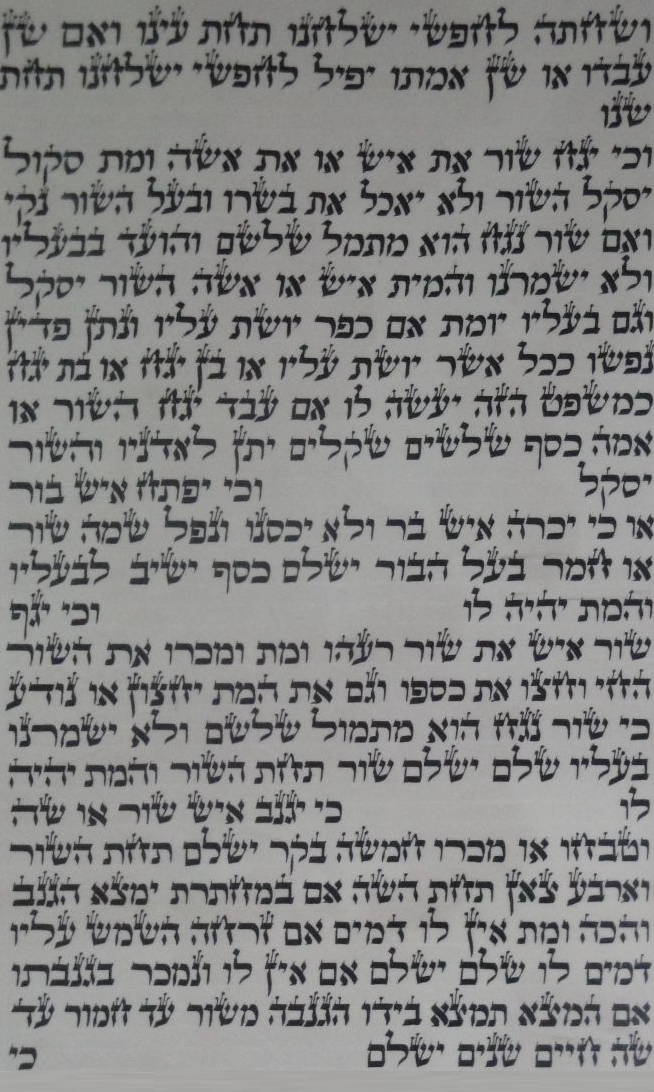 ושחתה לחפשי ישלחנו תחת עינו ואם שן
עבדו או שן אמתו יפיל לחפשי ישלחנו תחת
שנו
וכי יגח שור את איש או את אשה ומת סקול
יסקל השור ולא יאכל את בשרו ובעל השור נקי
ואם שור נגח הוא מתמל שלשם והועד בבעליו
ולא ישמרנו והמית איש או אשה השור יסקל
וגם בעליו יומת אם כפר יושת עליו ונתן פדין
נפשו ככל אשר יושת עליו או בן יגח או בת יגח
כמשפט הזה יעשה לו אם עבד יגח השור או
אמה כסף שלשים שקלים יתן לאדניו והשור
יסקל וכי יפתח איש בור
או כי יכרה איש בר ולא יכסנו ונפל שמה שור
או חמר בעל הבור ישלם כסף ישיב לבעליו
והמת יהיה לו וכי יגף
שור איש את שור רעהו ומת ומכרו את השור
החי וחצו את כספו וגם את המת יחצון או נודע
כי שור נגח הוא מתמול שלשם ולא ישמרנו
בעליו שלם ישלם שור תחת השור והמת יהיה
לו כי יגנב איש שור או שה
וטבחו או מכרו חמשה בקר ישלם תחת השור
וארבע צאן תחת השה אם במחתרת ימצא הגנב
והכה ומת אין לו דמים אם זרחה השמש עליו
דמים לו שלם ישלם אם אין לו ונמכר בגנבתו
אם המצא תמצא בידו הגנבה משור עד חמור עד
שה חיים שנים ישלם כי